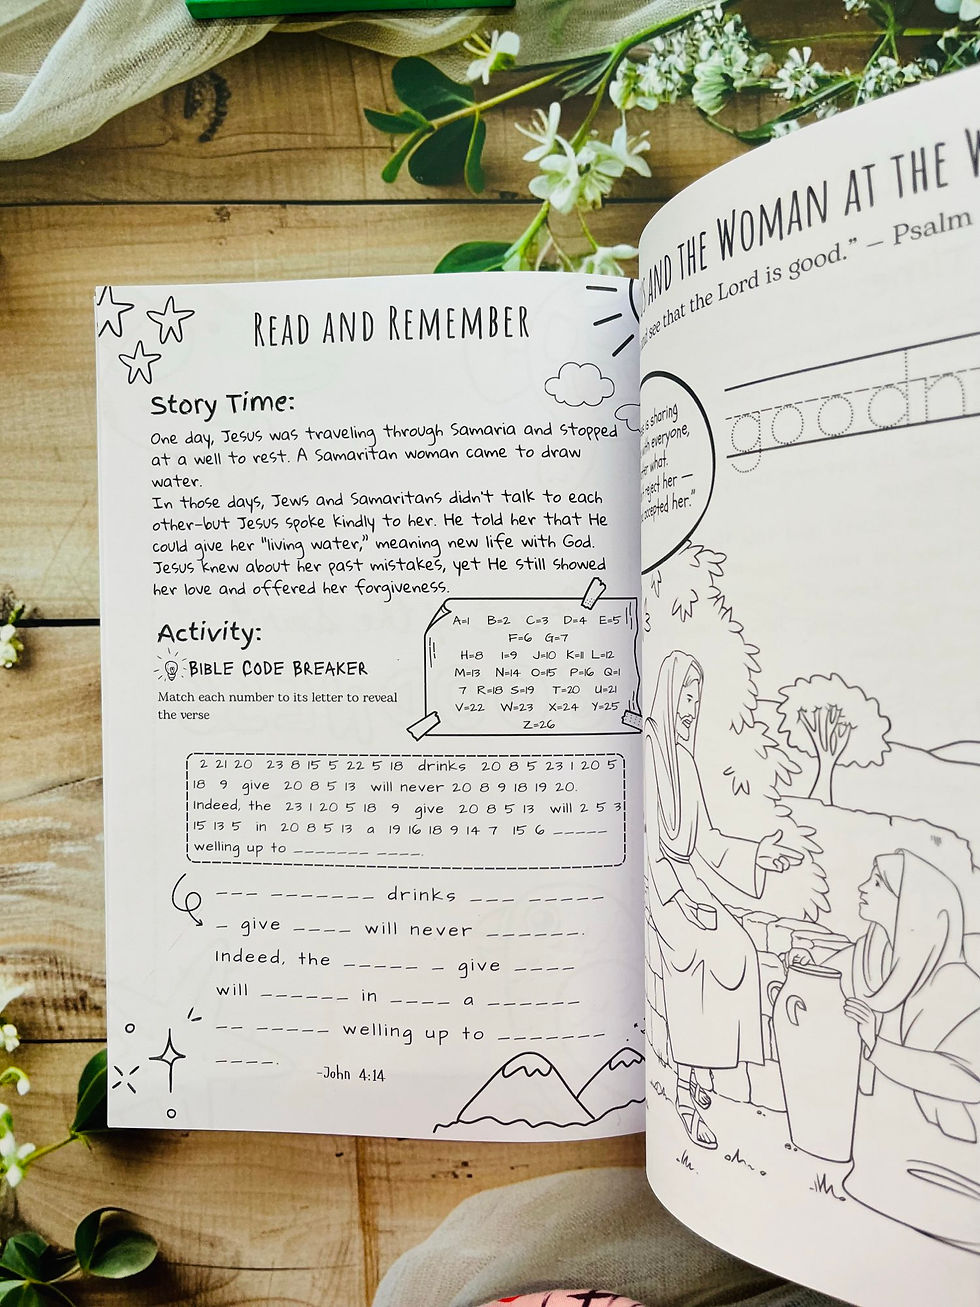 READ AND REMEMBER
Story Time:
One day, Jesus was traveling through Samaria and stopped
at a well to rest. A Samaritan woman came to draw
water.
In those days, Jews and Samaritans didn't talk to each
other-but Jesus spoke kindly to her. He told her that He
could give her "living water," meaning new life with God.
Jesus knew about her past mistakes, yet He still showed
her love and offered her forgiveness.
Activity:
BIBLE CODE BREAKER
Match each number to its letter to reveal
the verse
A=1 B=2 C=3 D=4 E=5
F=6 G=7
H=8 I=9 J=10 K=11 L=12
M=13 N=14 O=15 P=16 Q=1
7 R=18 S=19 T=20 U=21
V=22 W=23 X=24 Y=25
Z=26
2 21 20 23 8 15 5 22 5 18 drinks 20 8 5 23 1 20 5
18 9 give 20 8 5 13 will never 20 8 9 18 19 20.
Indeed, the 23 1 20 5 18 9 give 20 8 5 13 will 2 5 3
15 13 5 in 20 8 5 13 a 19 16 18 9 14 7 15 6 _____
welling up to _______ ____.
___ ________ drinks ___ _____
_ give ____ will never ______.
Indeed, the _____ _ give ____
will ______ in ____ a ______
__ _____ welling up to _______
____.
-John 4:14
AND THE WOMAN AT THE
see that the Lord is good." – Psalm
good
is sharing
with everyone,
what.
reject her —
accepted her."